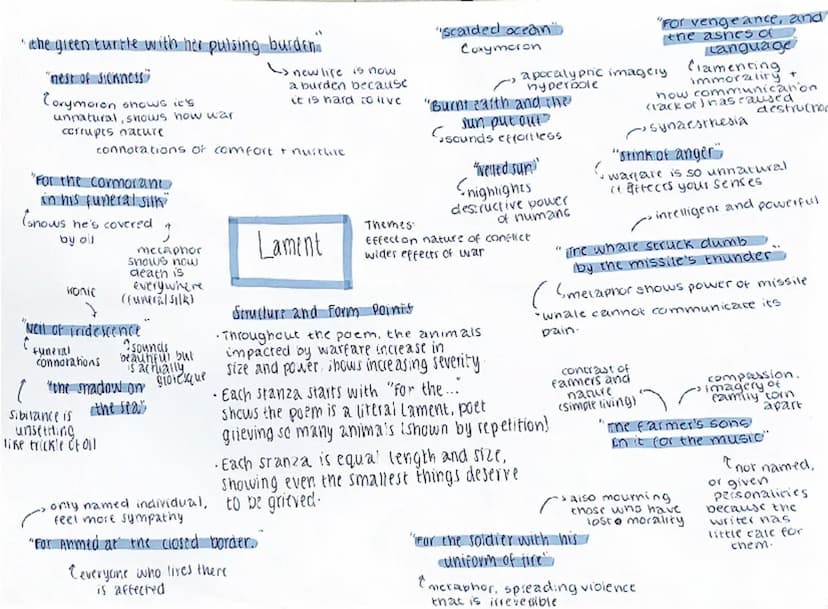 "the green turtle with her pulsing burden"
new life is now
a burden because
it is hard to live
"nest of sickness"
oxymoron shows it's
unnatural, shows how war
corrupts nature
connotations of comfort + nurture
"scalded ocean"
oxymoron
"For vengeance, and
the ashes of
language"
lamenting
immorality +
how communication
(lack of) has caused
destruction
apocalyptic imagery
hyperbole
"Burnt earth and the
sun put out"
sounds effortless
synaesthesia
"stink of anger"
warfare is so unnatural
it affects your senses
"veiled sun"
highlights
destructive power
of humans
"For the cormorant
in his funeral silk"
shows he's covered
by oil
metaphor
shows how
death is
everywhere
(funeral silk)
Lament
Themes:
Effect on nature of conflict
wider effects of war
intelligent and powerful
"The whale struck dumb
by the missile's thunder"
metaphor shows power of missile
whale cannot communicate its
pain.
ironic
"veil of iridescence"
funeral
connotations
sounds
beautiful but
is actually
grotesque
"the shadow on
the sea"
sibilance is
unsettling
like trickle of oil
Structure and Form Points
· Throughout the poem, the animals
impacted by warfare increase in
size and power, shows increasing severity
· Each stanza starts with "For the..."
shows the poem is a literal lament, poet
grieving so many animals (shown by repetition)
· Each stanza is equal length and size,
showing even the smallest things deserve
to be grieved.
contrast of
farmers and
nature
(simple living)
compassion,
imagery of
family torn
apart
"The farmer's sons
in it for the music"
not named,
or given
personalities
because the
writer has
little care for
them.
only named individual,
feel more sympathy
"For Ahmed at the closed border."
everyone who lives there
is affected
also mourning
those who have
lost morality
"For the soldier with his
uniform of fire"
metaphor, spreading violence
that is irreversible